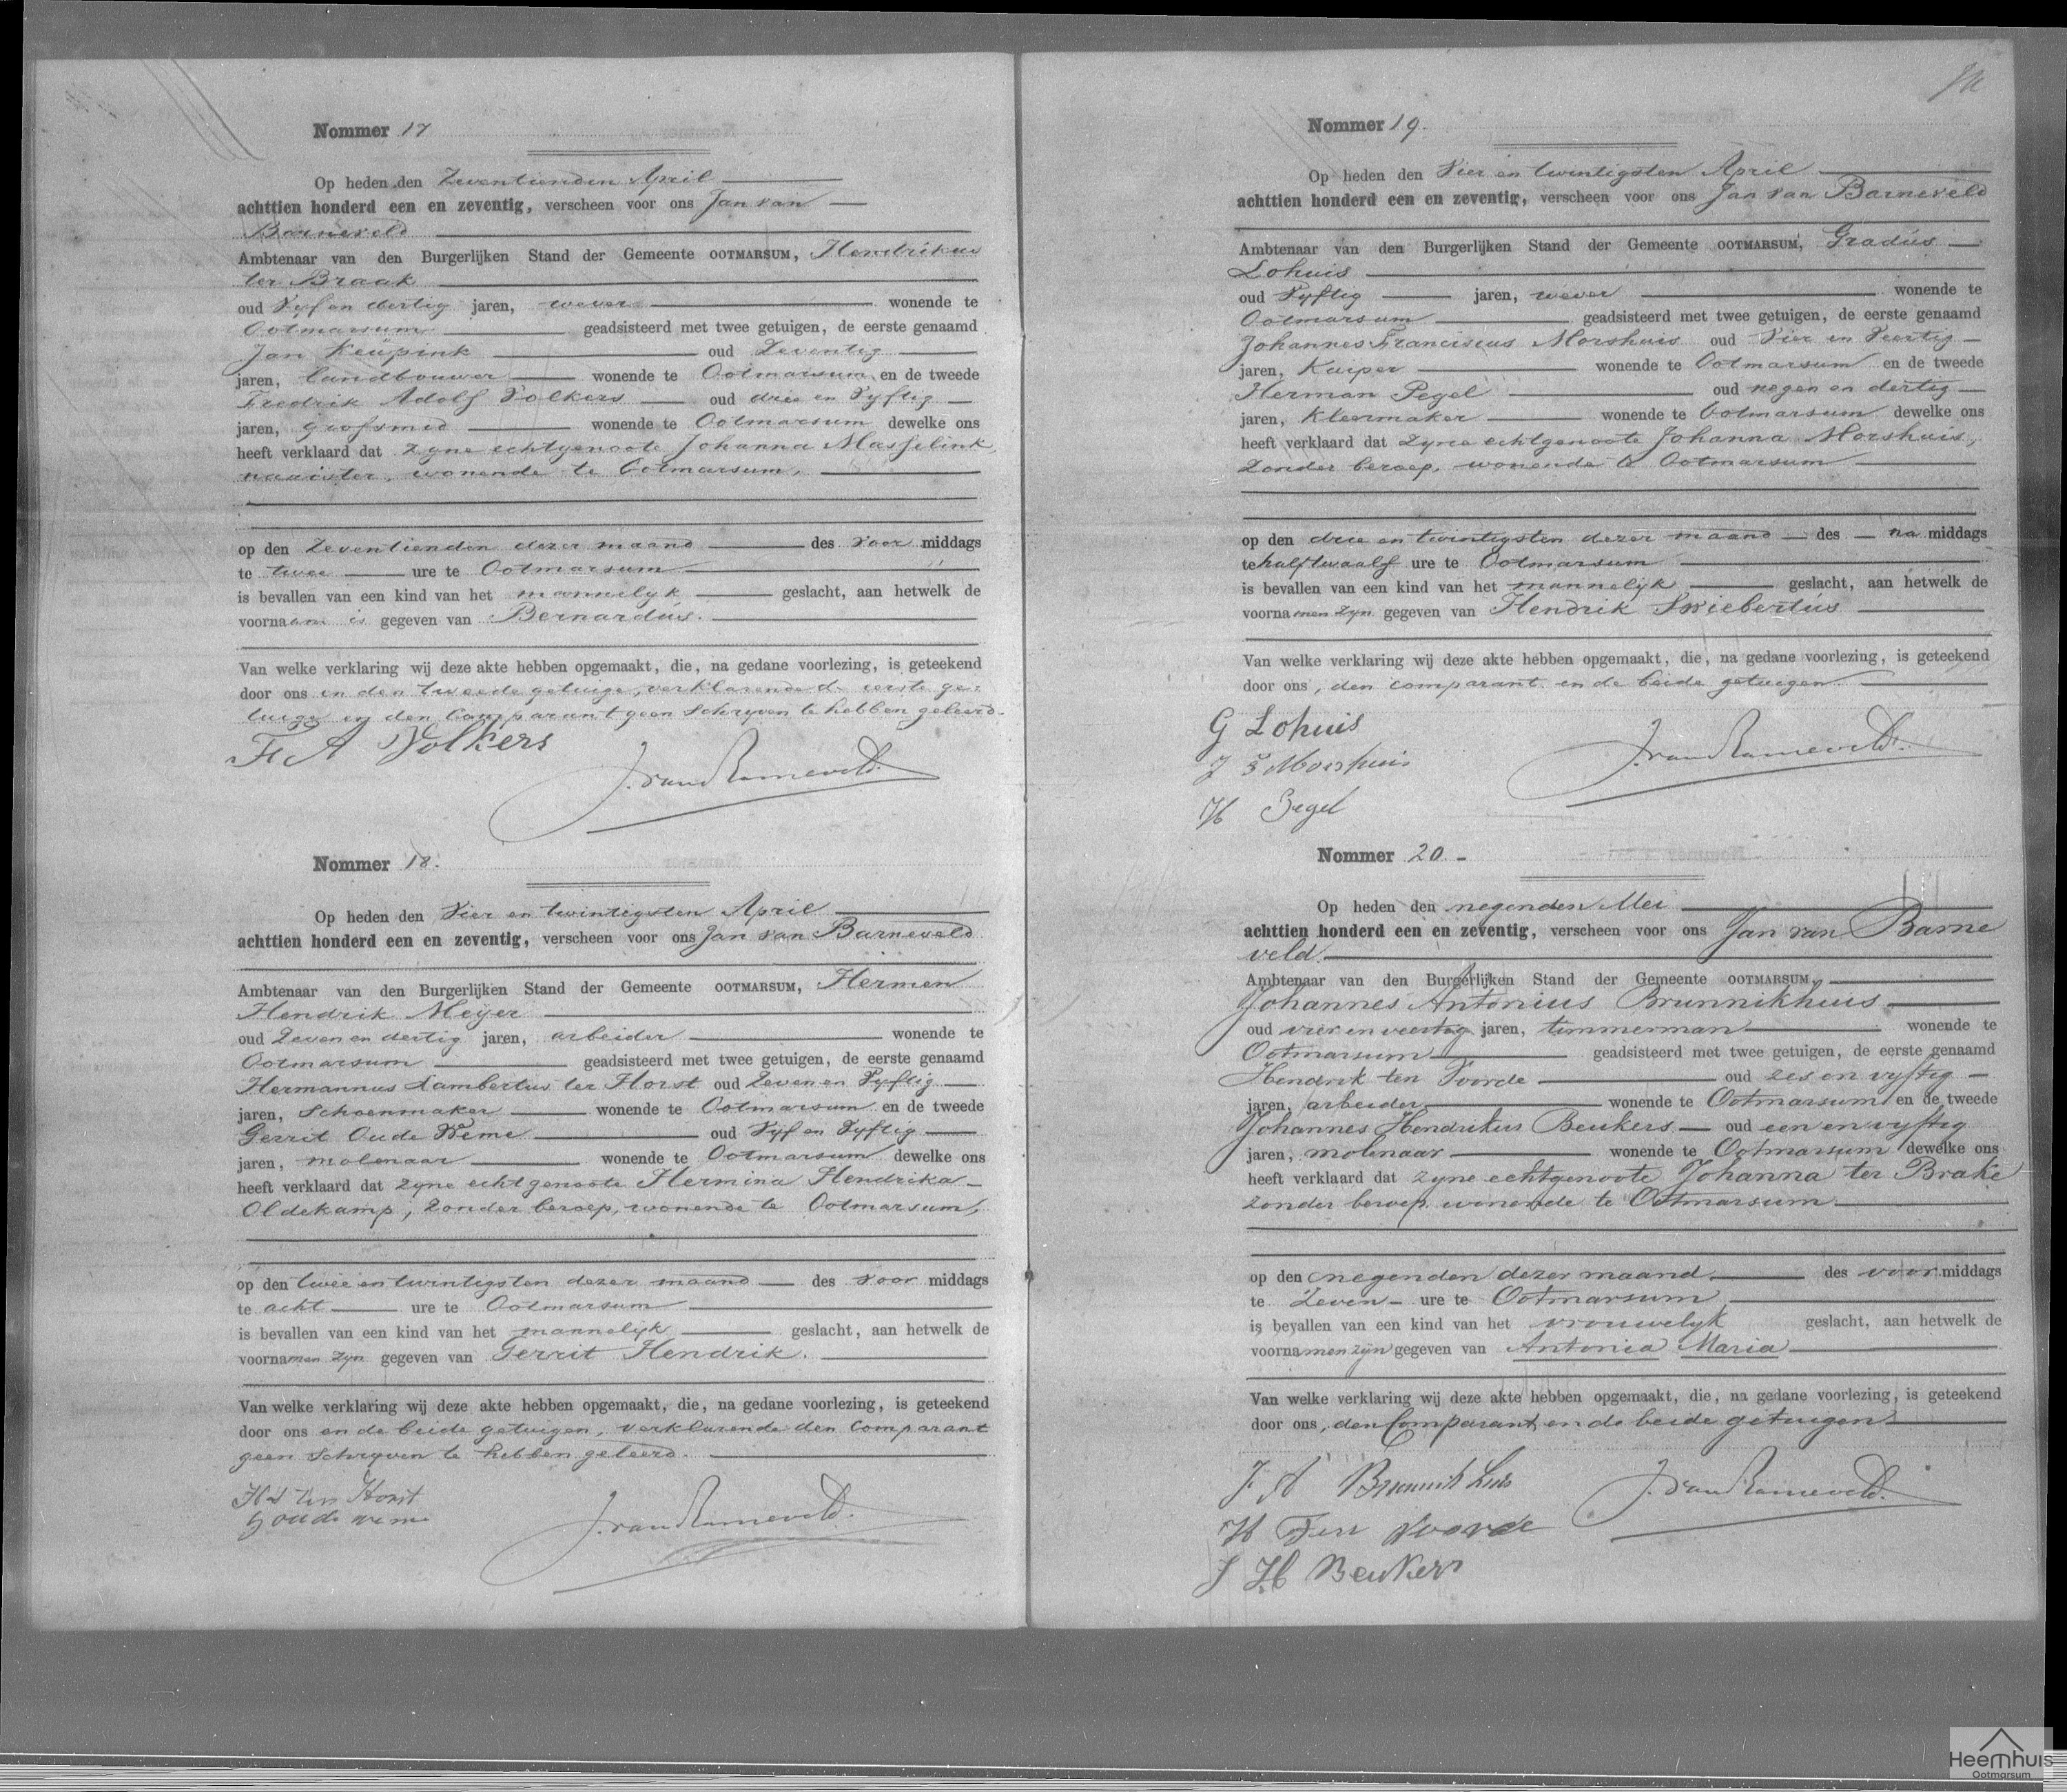 Nommer 17
Op heden den Zeventienden April
achttien honderd een en zeventig, verscheen voor ons Jan van
Barneveld
Ambtenaar van den Burgerlijken Stand der Gemeente OOTMARSUM, Hendrikus
ter Braak
oud Vyf en dertig jaren, wever wonende te
Ootmarsum geadsisteerd met twee getuigen, de eerste genaamd
Jan Keüpink oud Zeventig
jaren, landbouwer wonende te Ootmarsum en de tweede
Fredrik Adolf Volkers oud drie en Vyftig
jaren, grofsmid wonende te Ootmarsum dewelke ons
heeft verklaard dat zyne echtgenoote Johanna Masselink,
naaister, wonende te Ootmarsum,
op den Zeventienden dezer maand des voor middags
te twee ure te Ootmarsum
is bevallen van een kind van het mannelyk geslacht, aan hetwelk de
voornaam is gegeven van Bernardús.
Van welke verklaring wij deze akte hebben opgemaakt, die, na gedane voorlezing, is geteekend
door ons en den tweede getuige, verklarende de eerste ge-
tuige en den Comparant geen Schryven te hebben geleerd.
F A Volkers
J. van Barneveld.
Nommer 18.
Op heden den Vier en twintigsten April
achttien honderd een en zeventig, verscheen voor ons Jan van Barneveld
Ambtenaar van den Burgerlijken Stand der Gemeente OOTMARSUM, Hermen
Hendrik Meÿer
oud Zeven en dertig jaren, arbeider wonende te
Ootmarsum geadsisteerd met twee getuigen, de eerste genaamd
Hermannus Lambertus ter Horst oud Zeven en Vyftig
jaren, Schoenmaker wonende te Ootmarsum en de tweede
Gerrit Oude Weme oud Vyf en Vyftig
jaren, molenaar wonende te Ootmarsum dewelke ons
heeft verklaard dat zyne echtgenoote Hermina Hendrika
Oldekamp, Zonder beroep, wonende te Ootmarsum,
op den twee en twintigsten dezer maand des voor middags
te acht ure te Ootmarsum
is bevallen van een kind van het mannelyk geslacht, aan hetwelk de
voornamen zyn gegeven van Gerrit Hendrik.
Van welke verklaring wij deze akte hebben opgemaakt, die, na gedane voorlezing, is geteekend
door ons en de beide getuigen, verklarende den Comparant
geen Schryven te hebben geleerd.
H L ter Horst
G oude weme
J. van Barneveld.
Nommer 19.
Op heden den Vier en twintigsten April
achttien honderd een en zeventig, verscheen voor ons Jan van Barneveld
Ambtenaar van den Burgerlijken Stand der Gemeente OOTMARSUM, Gradús
Lohuis
oud Vyftig jaren, wever wonende te
Ootmarsum geadsisteerd met twee getuigen, de eerste genaamd
Johannes Franciscus Morshuis oud Vier en Veertig
jaren, Kuiper wonende te Ootmarsum en de tweede
Herman Pegel oud negen en dertig
jaren, Kleermaker wonende te Ootmarsum dewelke ons
heeft verklaard dat zyne echtgenoote Johanna Morshuis,
Zonder beroep, wonende te Ootmarsum
op den drie en twintigsten dezer maand des na middags
te half twaalf ure te Ootmarsum
is bevallen van een kind van het mannelyk geslacht, aan hetwelk de
voornamen zyn gegeven van Hendrik Swiebertús
Van welke verklaring wij deze akte hebben opgemaakt, die, na gedane voorlezing, is geteekend
door ons, den comparant en de beide getuigen
G Lohuis
J F Morshuis
H Pegel
J. van Barneveld.
Nommer 20
Op heden den negenden Mei
achttien honderd een en zeventig, verscheen voor ons Jan van Barne
veld.
Ambtenaar van den Burgerlijken Stand der Gemeente OOTMARSUM,
Johannes Antonius Brunnikhuis
oud vier en veertig jaren, timmerman wonende te
Ootmarsum geadsisteerd met twee getuigen, de eerste genaamd
Hendrik ten Voorde oud zes en vyftig
jaren, arbeider wonende te Ootmarsum en de tweede
Johannes Hendrikus Beukers oud een en vyftig
jaren, molenaar wonende te Ootmarsum dewelke ons
heeft verklaard dat zyne echtgenoote Johanna ter Brake
zonder beroep wonende te Ootmarsum
op den negenden dezer maand des voor middags
te Zeven ure te Ootmarsum
is bevallen van een kind van het vrouwelyk geslacht, aan hetwelk de
voornamen zyn gegeven van Antonia Maria
Van welke verklaring wij deze akte hebben opgemaakt, die, na gedane voorlezing, is geteekend
door ons, den Comparant en de beide getuigen
J A Brunnikhuis
H Ten Voorde
J H Beukers
J. van Barneveld.
Heemhuis
Ootmarsum